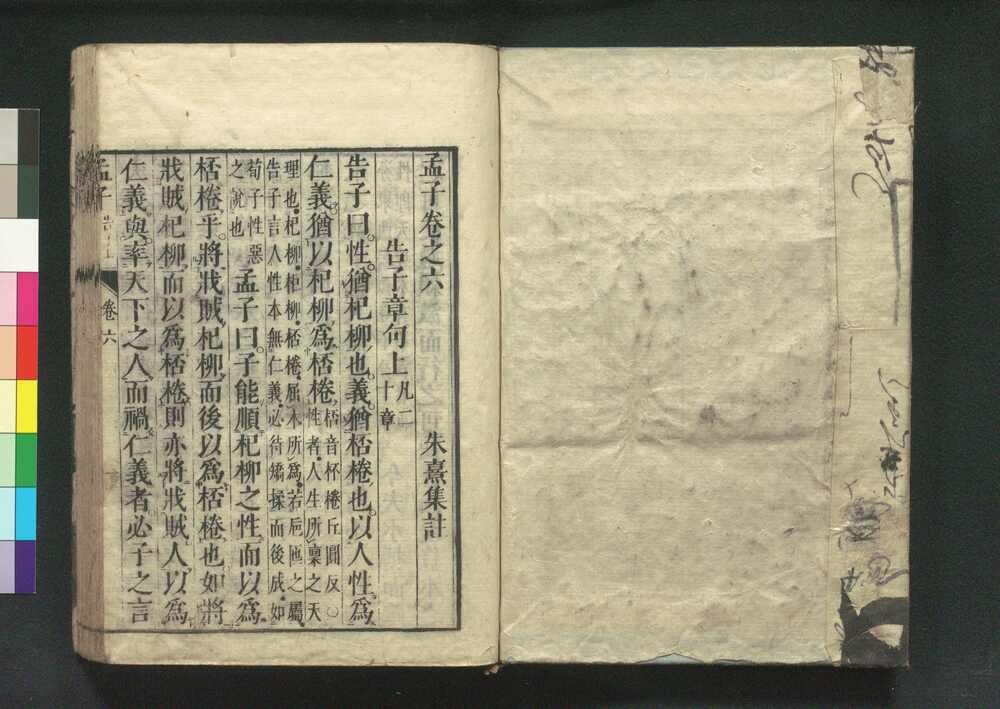 孟子卷之六
朱熹集註
告子章句上 凡二十章
告子曰。性。猶杞柳也。義。猶桮棬也。以人性爲
仁義。猶以杞柳爲桮棬。桮音杯棬丘圓反○性者。人生所稟之天
理也。杞柳。柜柳。桮棬。屈木所爲。若巵匜之屬。
告子言人性本無仁義。必待矯揉而後成。如
荀子性惡之說也 孟子曰。子能順杞柳之性而以爲
桮棬乎。將戕賊杞柳而後以爲桮棬也如將
戕賊杞柳而以爲桮棬。則亦將戕賊人以爲
仁義與。率天下之人而禍仁義者必子之言
孟子
卷六